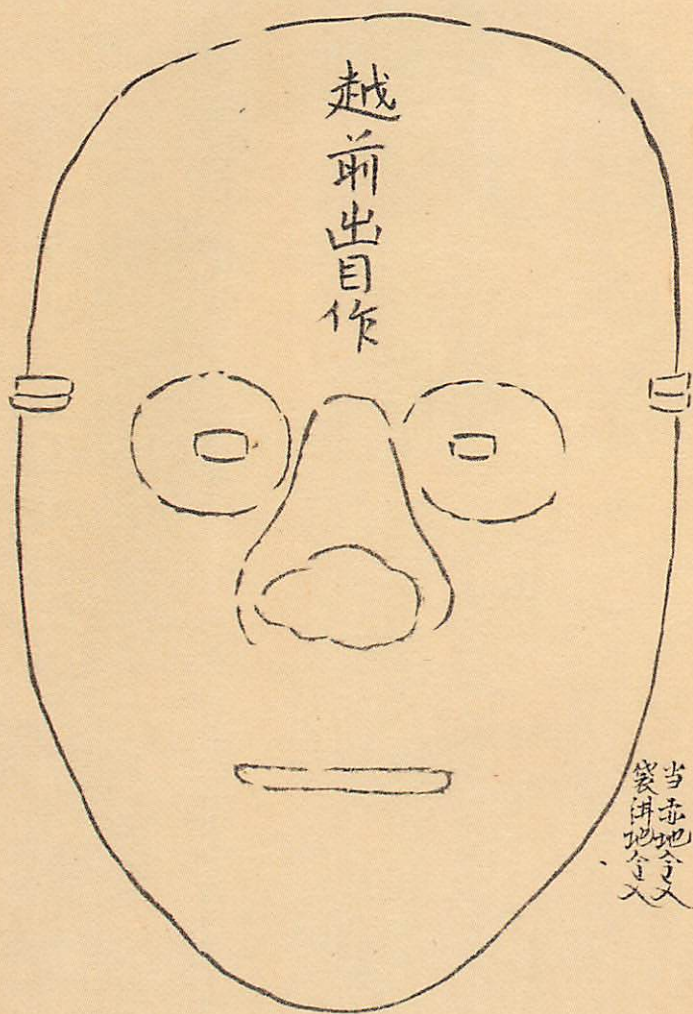 越前出目作
当赤地金入
袋地金入